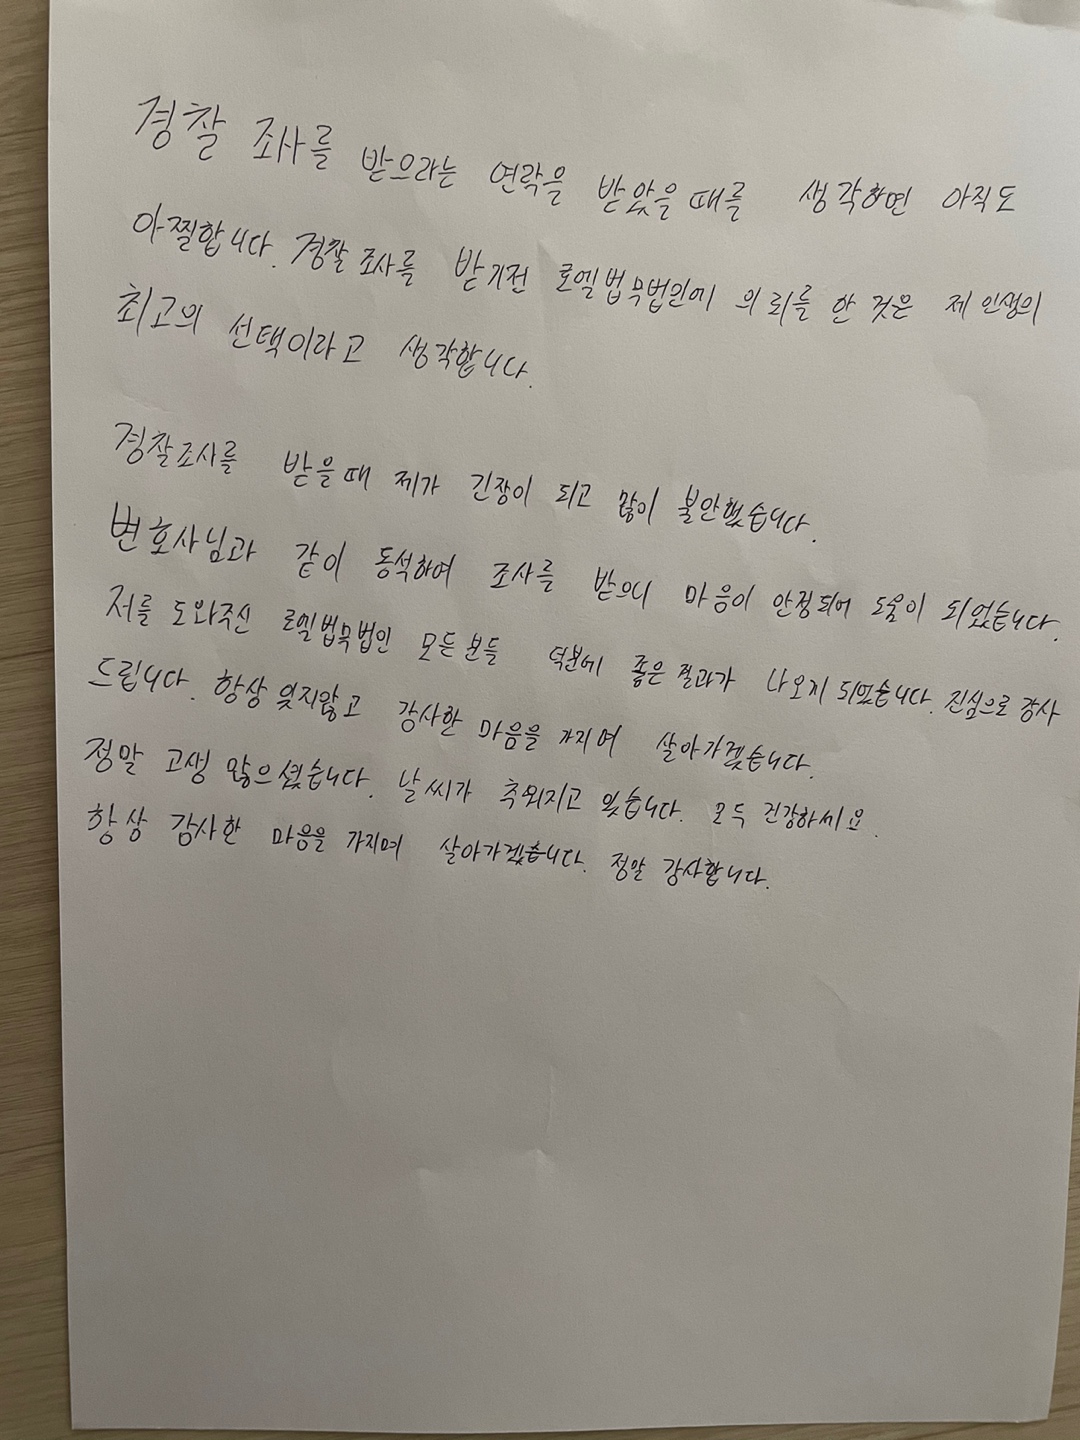 경찰 조사를 받으라는 연락을 받았을때를 생각하면 아직도
아찔합니다. 경찰조사를 받기전 로엘법무법인에 의뢰를 한 것은 제 인생의
최고의 선택이라고 생각합니다.
경찰조사를 받을때 제가 긴장이 되고 많이 불안했습니다.
변호사님과 같이 동석하여 조사를 받으니 마음이 안정되어 도움이 되었습니다.
저를 도와주신 로엘법무법인 모든분들 덕분에 좋은결과가 나오게 되었습니다. 진심으로 감사
드립니다. 항상 잊지않고 감사한 마음을 가지며 살아가겠습니다.
정말 고생 많으셨습니다. 날씨가 추워지고 있습니다. 모두 건강하세요.
항상 감사한 마음을 가지며 살아가겠습니다. 정말 감사합니다.